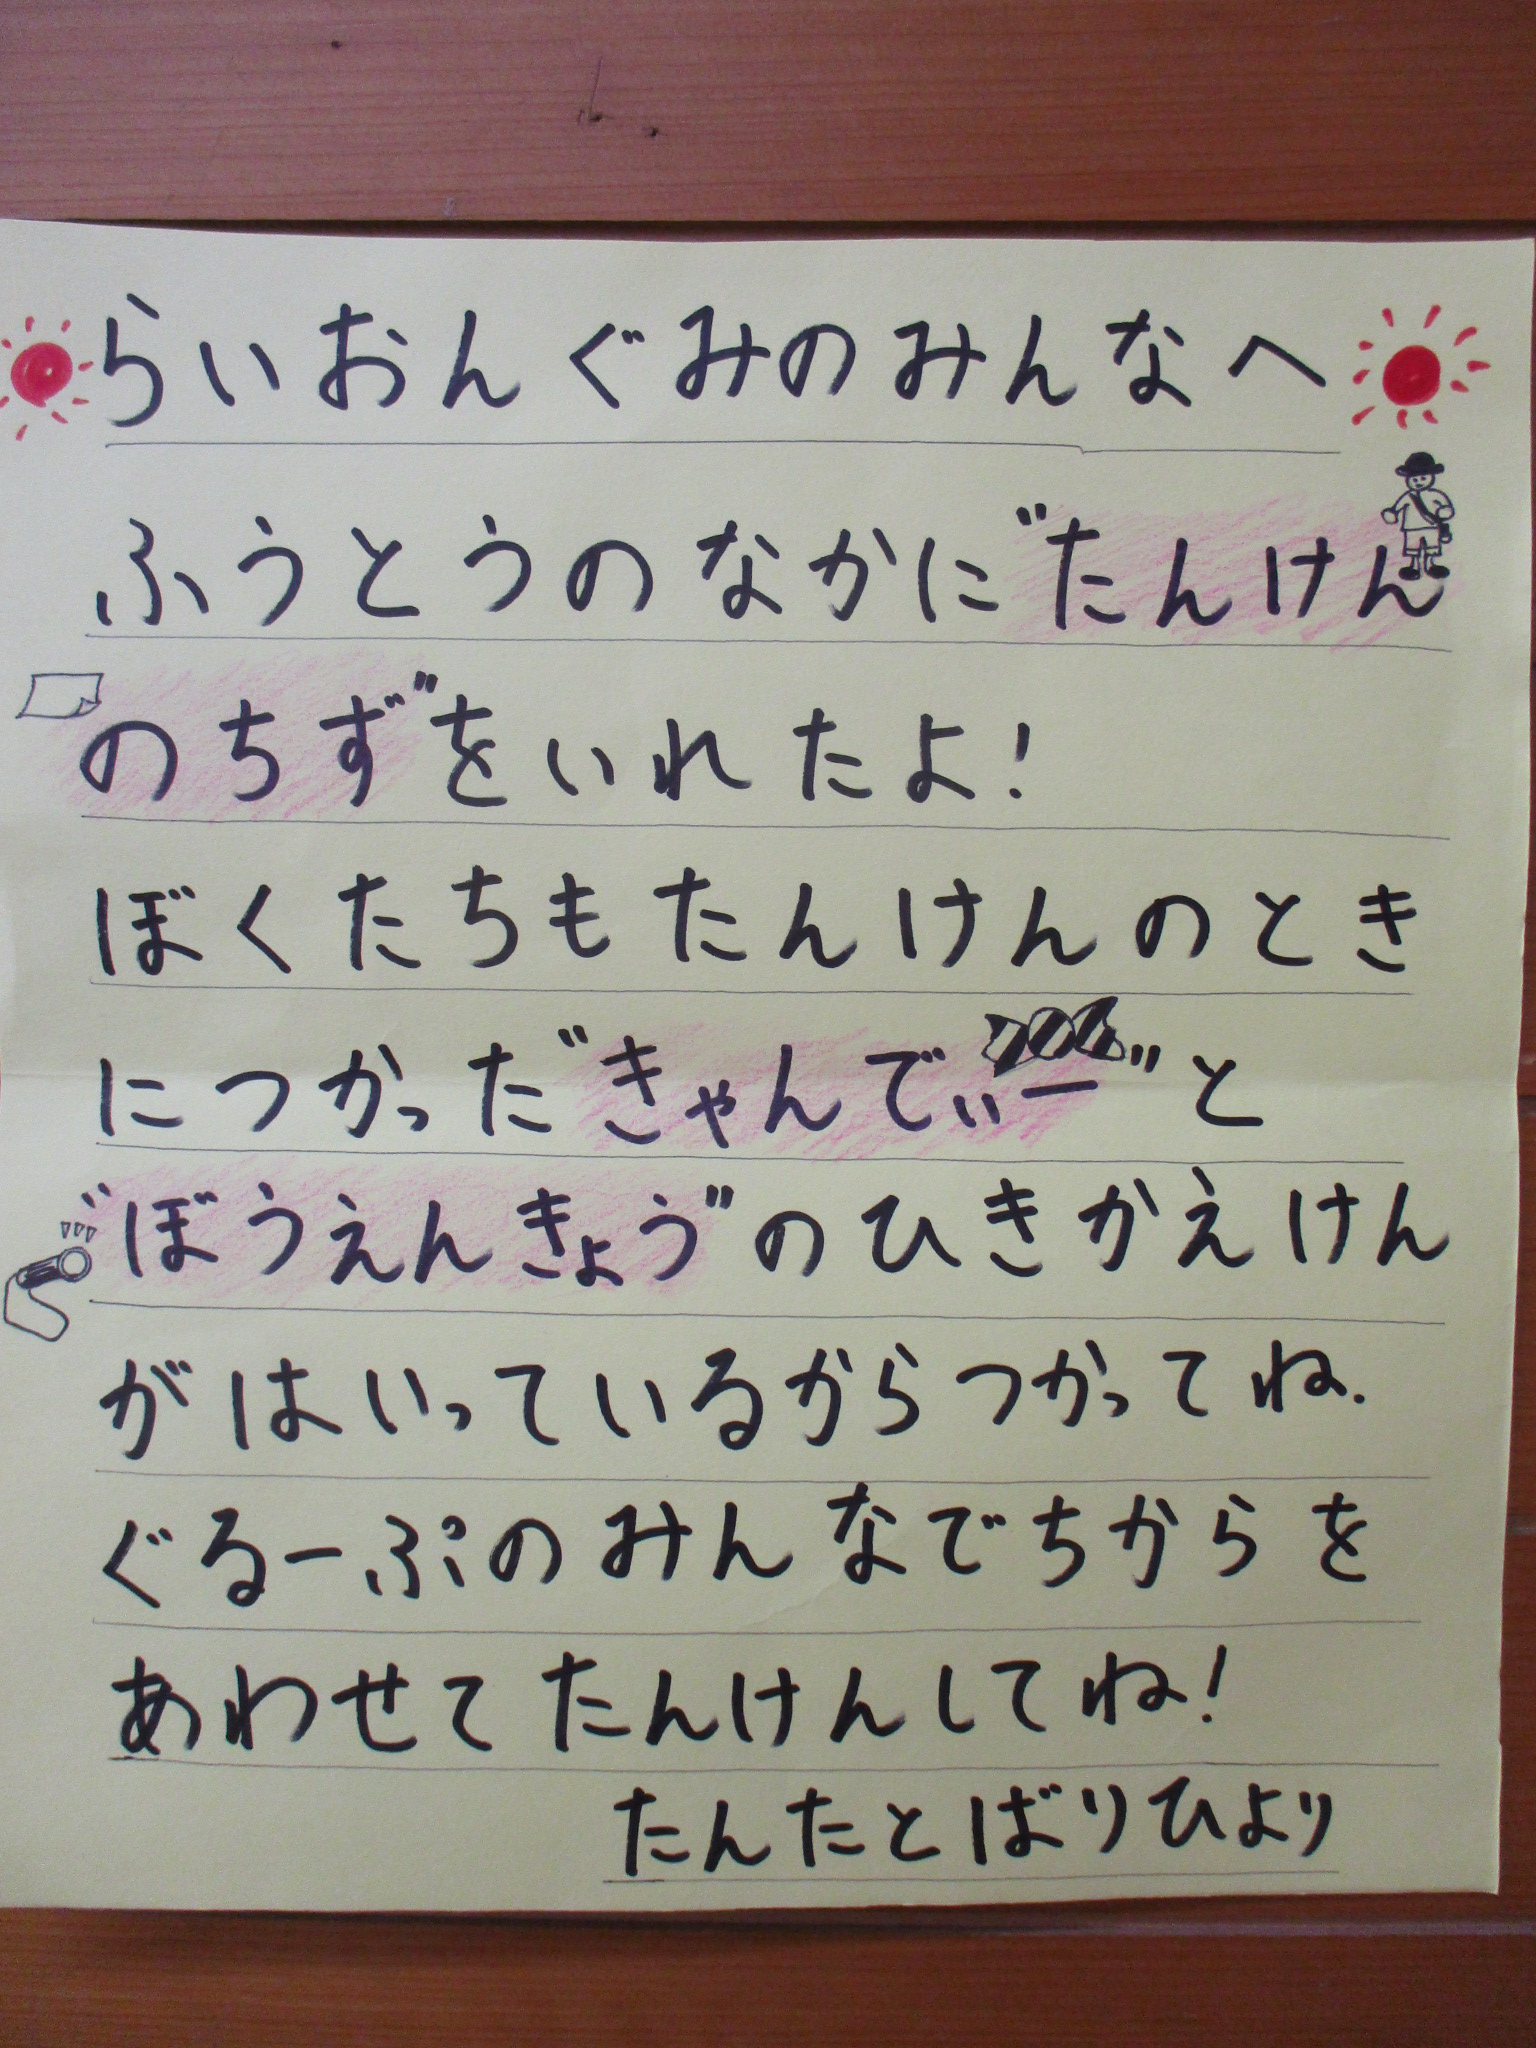 らいおんぐみのみんなへ
ふうとうのなかに"たんけん
のちず"をいれたよ!
ぼくたちもたんけんのとき
につかった"きゃんでぃー"と
"ぼうえんきょう"のひきかえけん
がはいっているからつかってね.
ぐるーぷのみんなでちからを
あわせてたんけんしてね!
たんたとばりひより